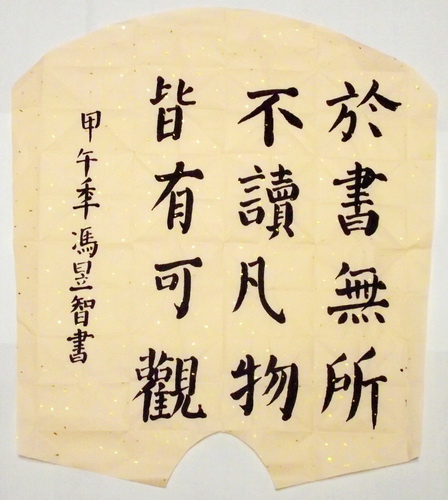 於書無所
不讀凡物
皆有可觀
甲午季馮昱智書